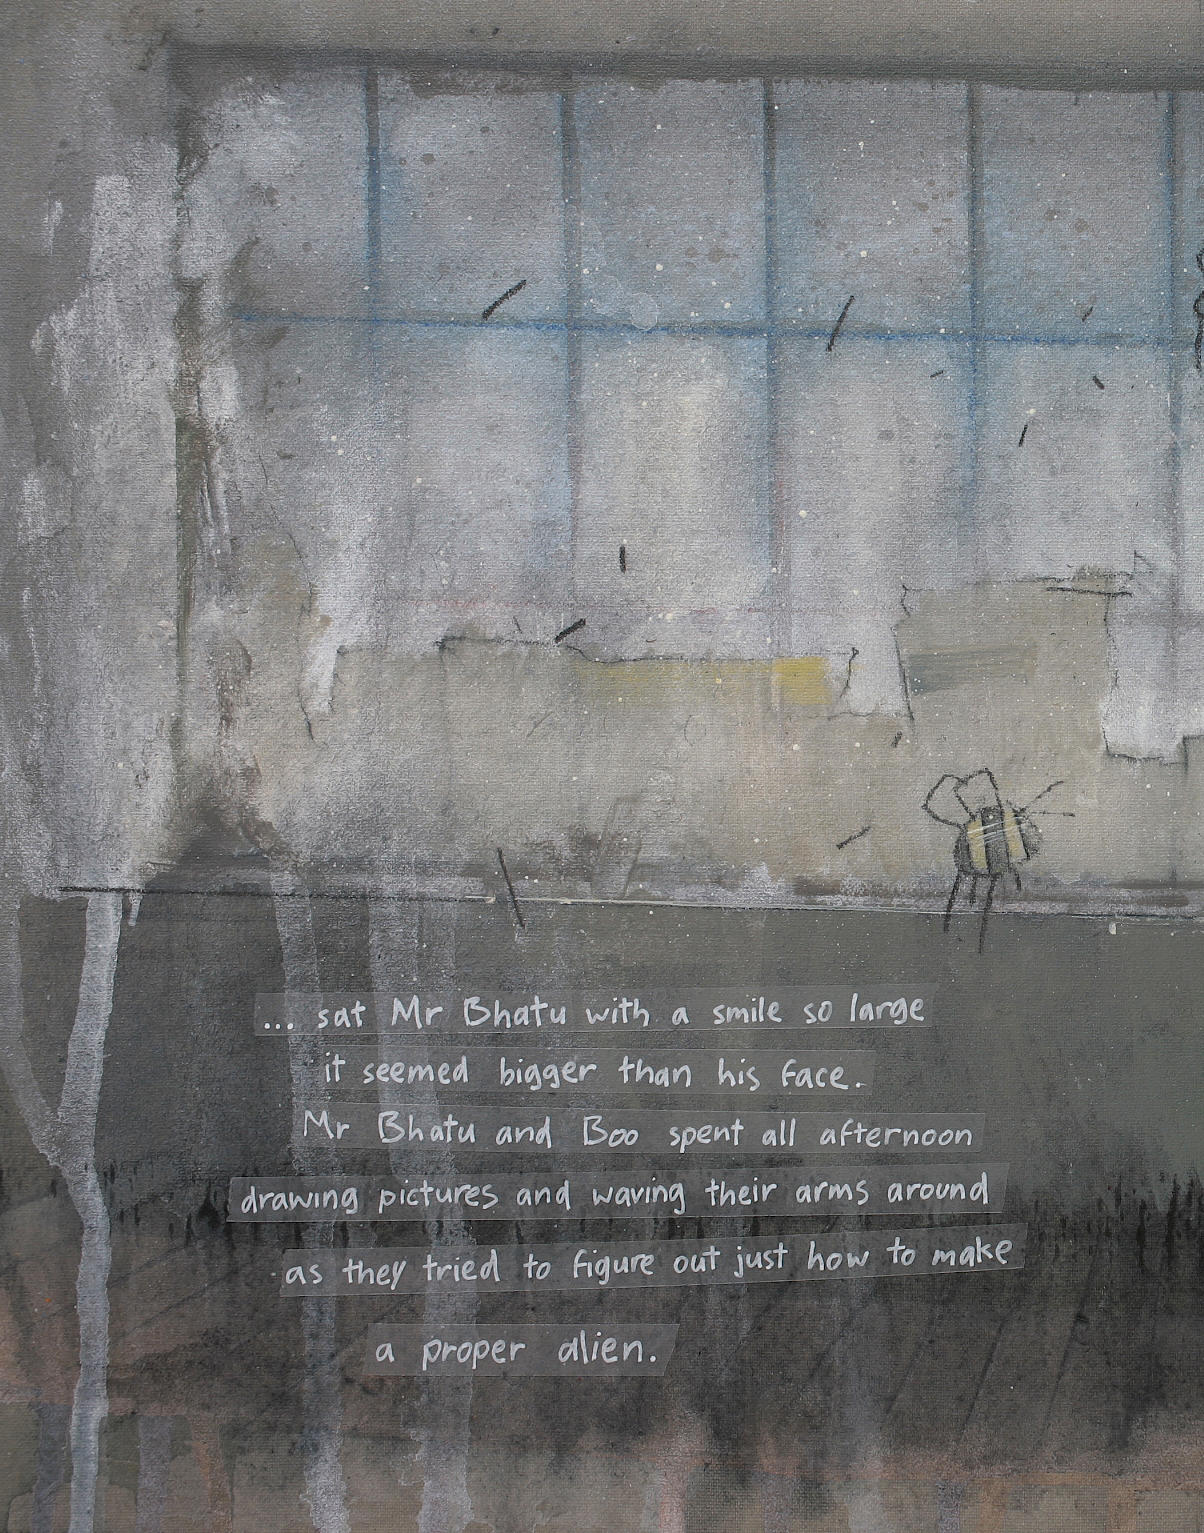 ... sat Mr Bhatu with a smile so large
it seemed bigger than his face.
Mr Bhatu and Boo spent all afternoon
drawing pictures and waving their arms around
as they tried to figure out just how to make
a proper alien.